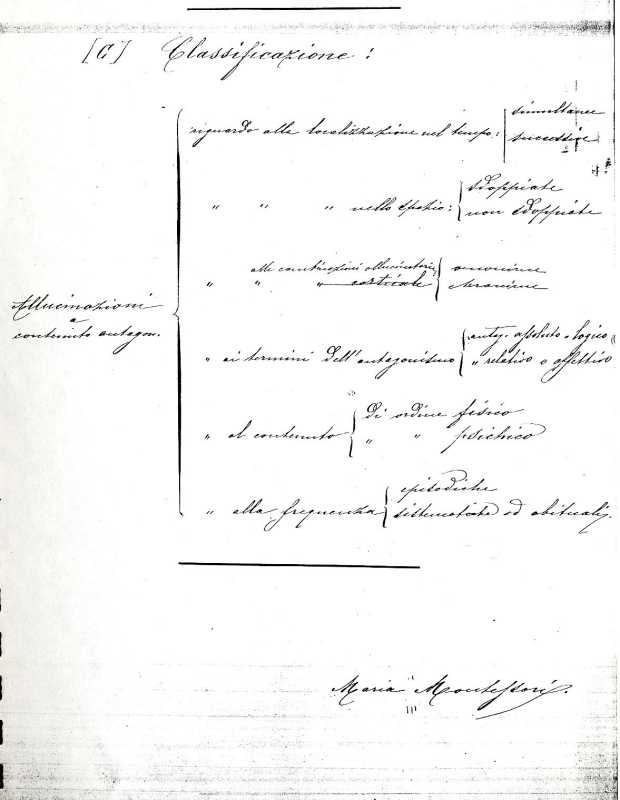 [C] Classificazione:
Allucinazioni
a
contenuto antagon.
riguardo alla localizzazione nel tempo: simultanee
successive
" " " nello spazio: sdoppiate
non sdoppiate
" alle combinazioni allucinatorie omonime
" " corticale eteronime
" ai termini dell'antagonismo antag. assoluto o logico
" relativo o affettivo
" al contenuto di ordine fisico
" " psichico
" alla frequenza episodiche
sistematiche od abituali.
Maria Montessori.